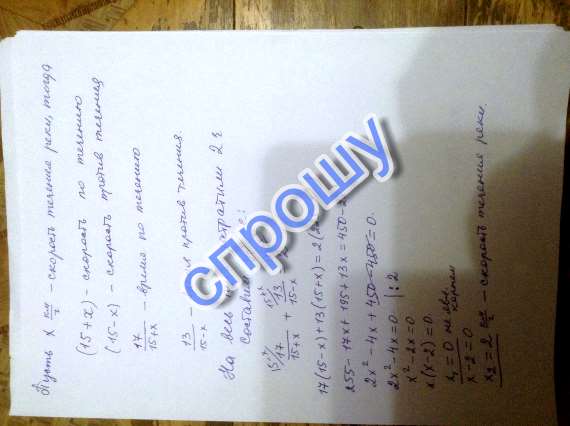 Пусть x км/ч – скорость течения реки, тогда
(15+x) – скорость по течению
(15-x) – скорость против течения
17/15+x – время по течению
13/15-x – против течения.
На весь тратили 2 ч
состав
15-x/ 17/15+x + 15+x/ 13/15-x
17(15-x)+13(15+x)=2(
255-17x+195+13x=450-2
2x²-4x+450-450=0.
2x²-4x=0 |:2
x²-2x=0.
x(x-2)=0.
x₁=0 не явл. корнем
x-2=0
x₂=2 км/ч – скорость течения реки.
спрошу